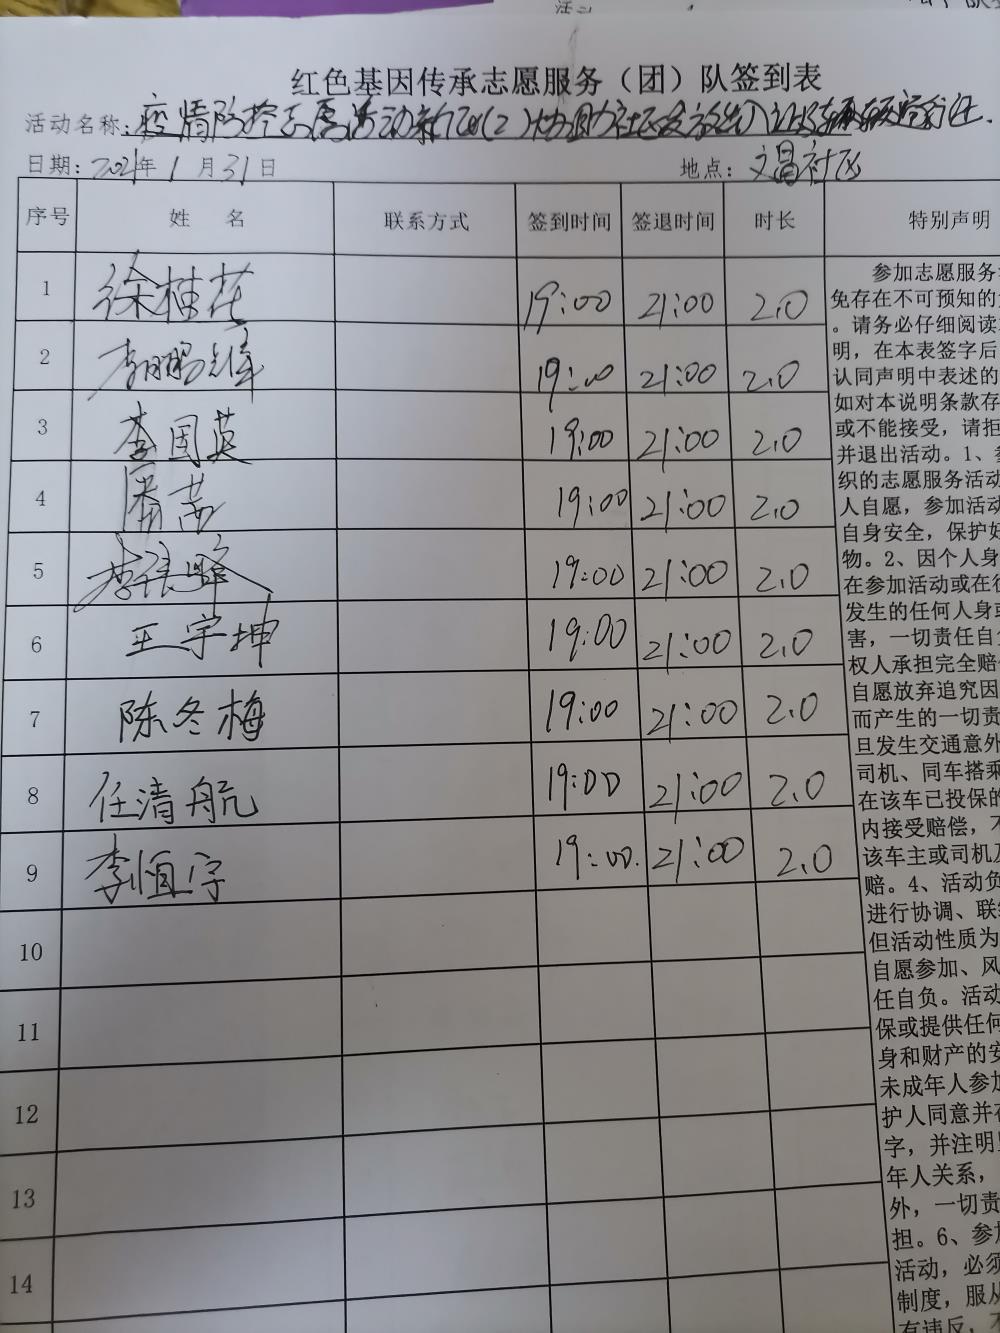 红色基因传承志愿服务（团）队签到表
活动名称：疫情防控志愿活动新冠(2)协助社区发放出入证及车辆通行证
日期：2021年1月31日 地点：文昌社区
序号 姓 名 联系方式 签到时间 签退时间 时长 特别声明
1 徐桂花 19:00 21:00 2.0
2 19:00 21:00 2.0
3 李国英 19:00 21:00 2.0
4 潘茜 19:00 21:00 2.0
5 19:00 21:00 2.0
6 王宇坤 19:00 21:00 2.0
7 陈冬梅 19:00 21:00 2.0
8 任清航 19:00 21:00 2.0
9 李恒宇 19:00. 21:00 2.0
10
11
12
13
14
参加志愿服务
免存在不可预知的
。请务必仔细阅读
明，在本表签字后
认同声明中表述的
如对本说明条款存
或不能接受，请拒
并退出活动。1、
织的志愿服务活动
人自愿，参加活动
自身安全，保护好
物。2、因个人身
在参加活动或在往
发生的任何人身或
害，一切责任自
权人承担完全赔
自愿放弃追究因
而产生的一切责
旦发生交通意外
司机、同车搭乘
在该车已投保的
内接受赔偿，不
该车主或司机及
赔。4、活动负
进行协调、联
但活动性质为
自愿参加、风
任自负。活动
保或提供任何
身和财产的安
未成年人参加
护人同意并在
字，并注明
年人关系，
外，一切责
担。6、参加
活动，必须
制度，服从
有违反，